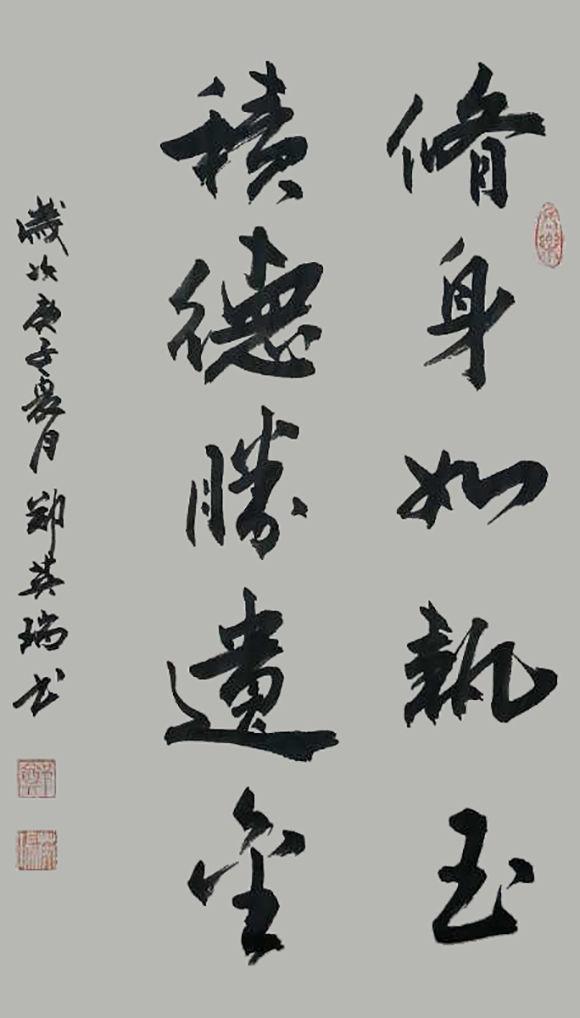 脩身如執玉
積德勝遺金
歲次庚子夏月鄭英瑞书